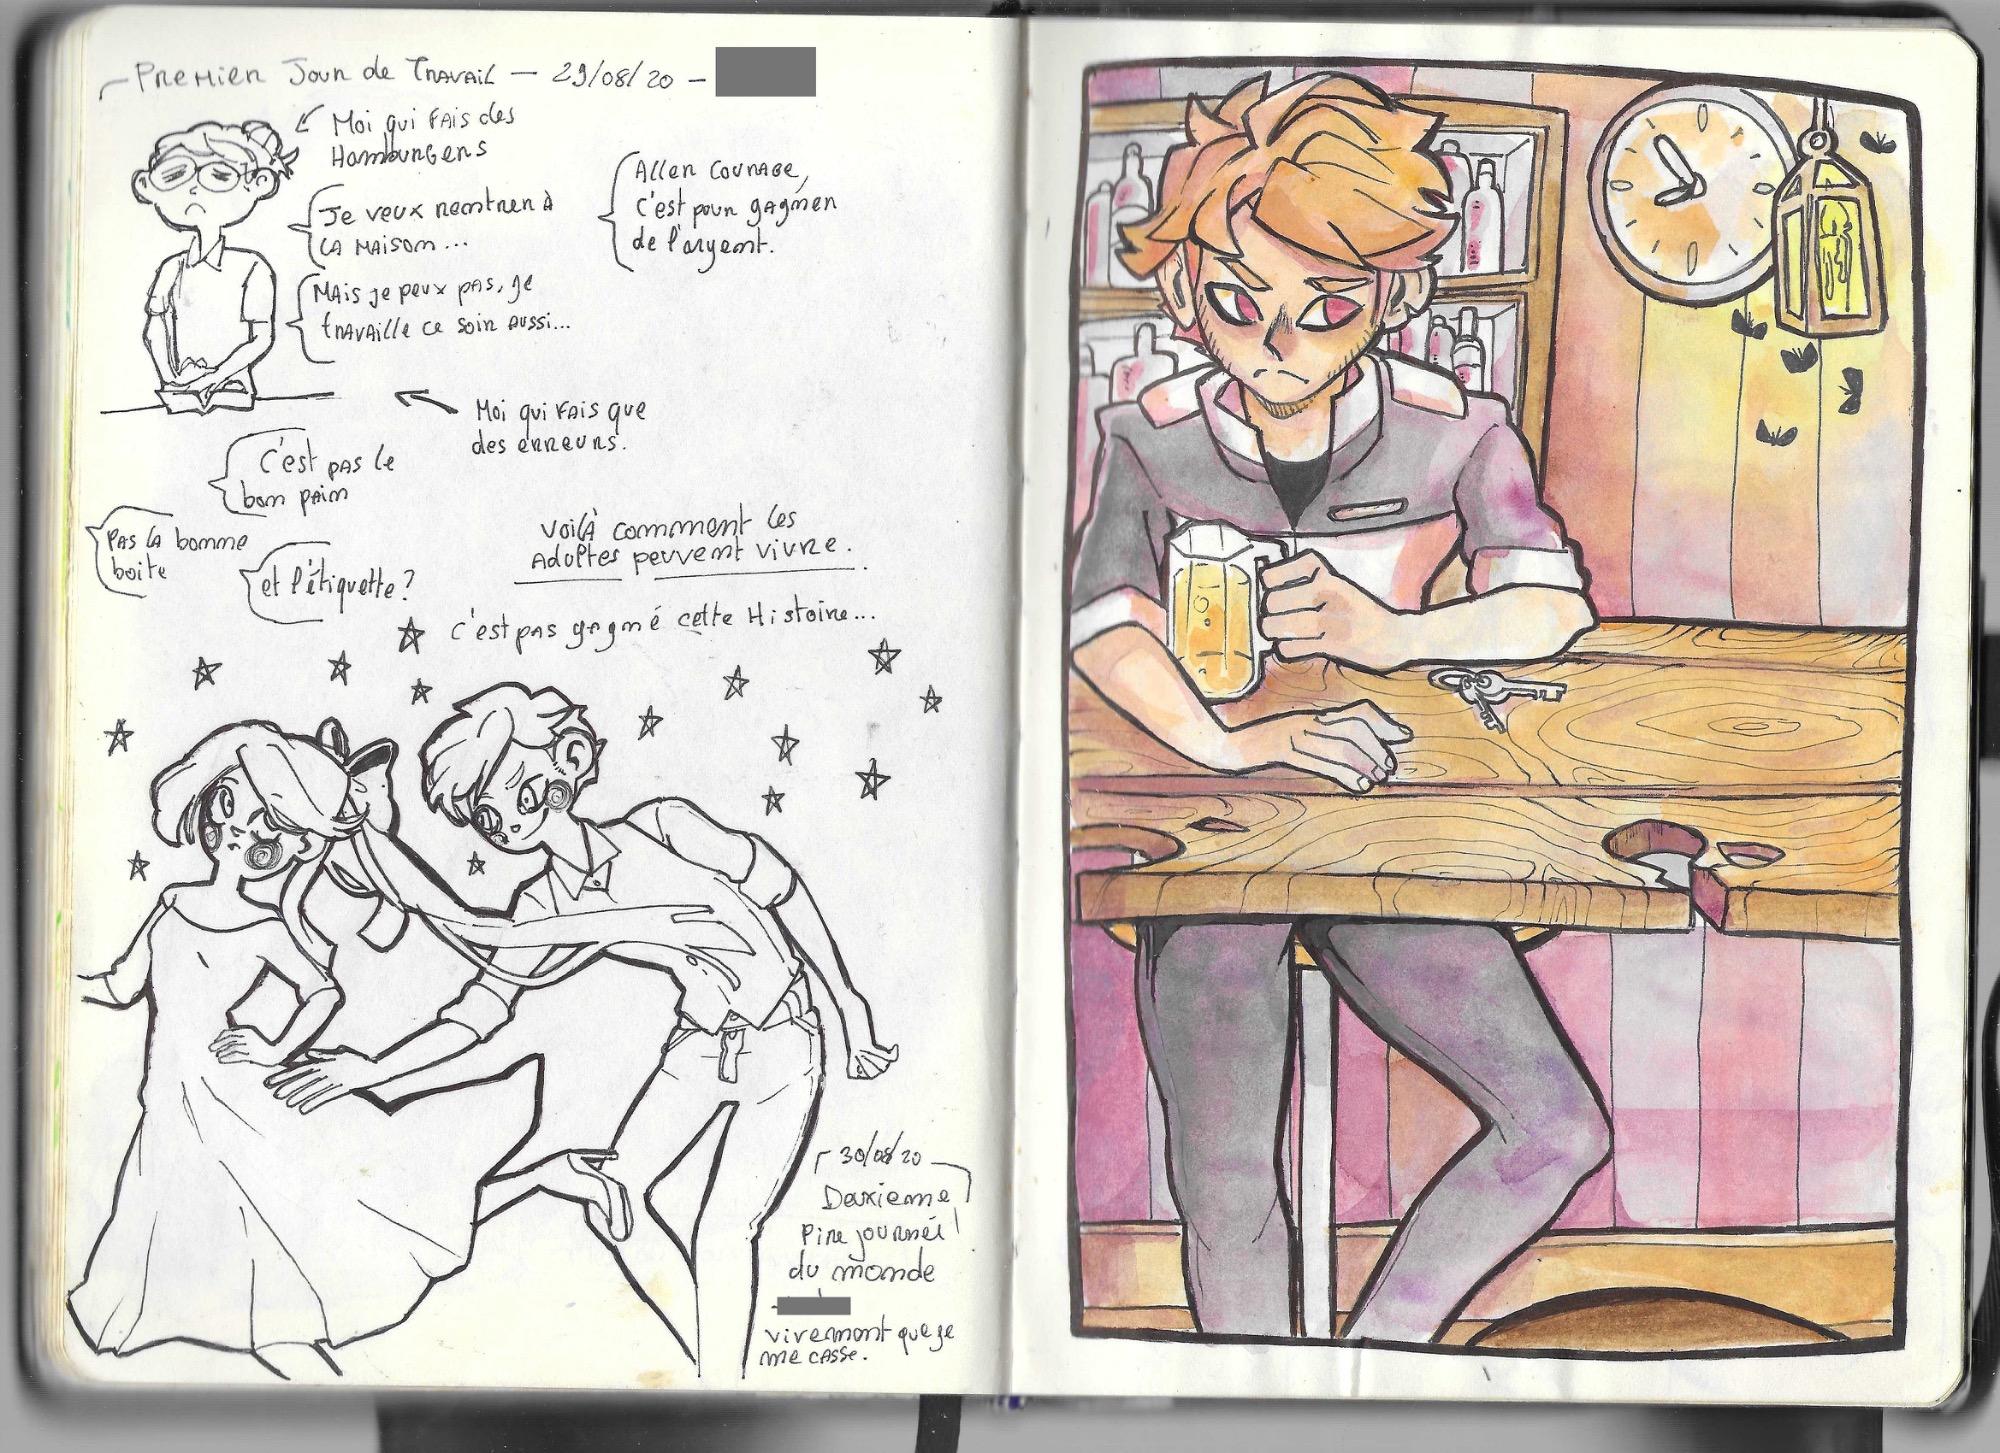 Premier Jour de Travail — 29/08/20 –
Moi qui fais des
Hamburgers
Je veux rentrer à
la maison...
Aller courage,
c'est pour gagner
de l'argent.
Mais je peux pas, je
travaille ce soir aussi...
Moi qui fais que
des erreurs.
C'est pas le
bon pain
Pas la bonne
boite
et l'étiquette?
Voilà comment les
adultes peuvent vivre.
C'est pas gagné cette Histoire...
30/08/20
Deuxieme
Pire journée
du monde
vivement que je
me casse.